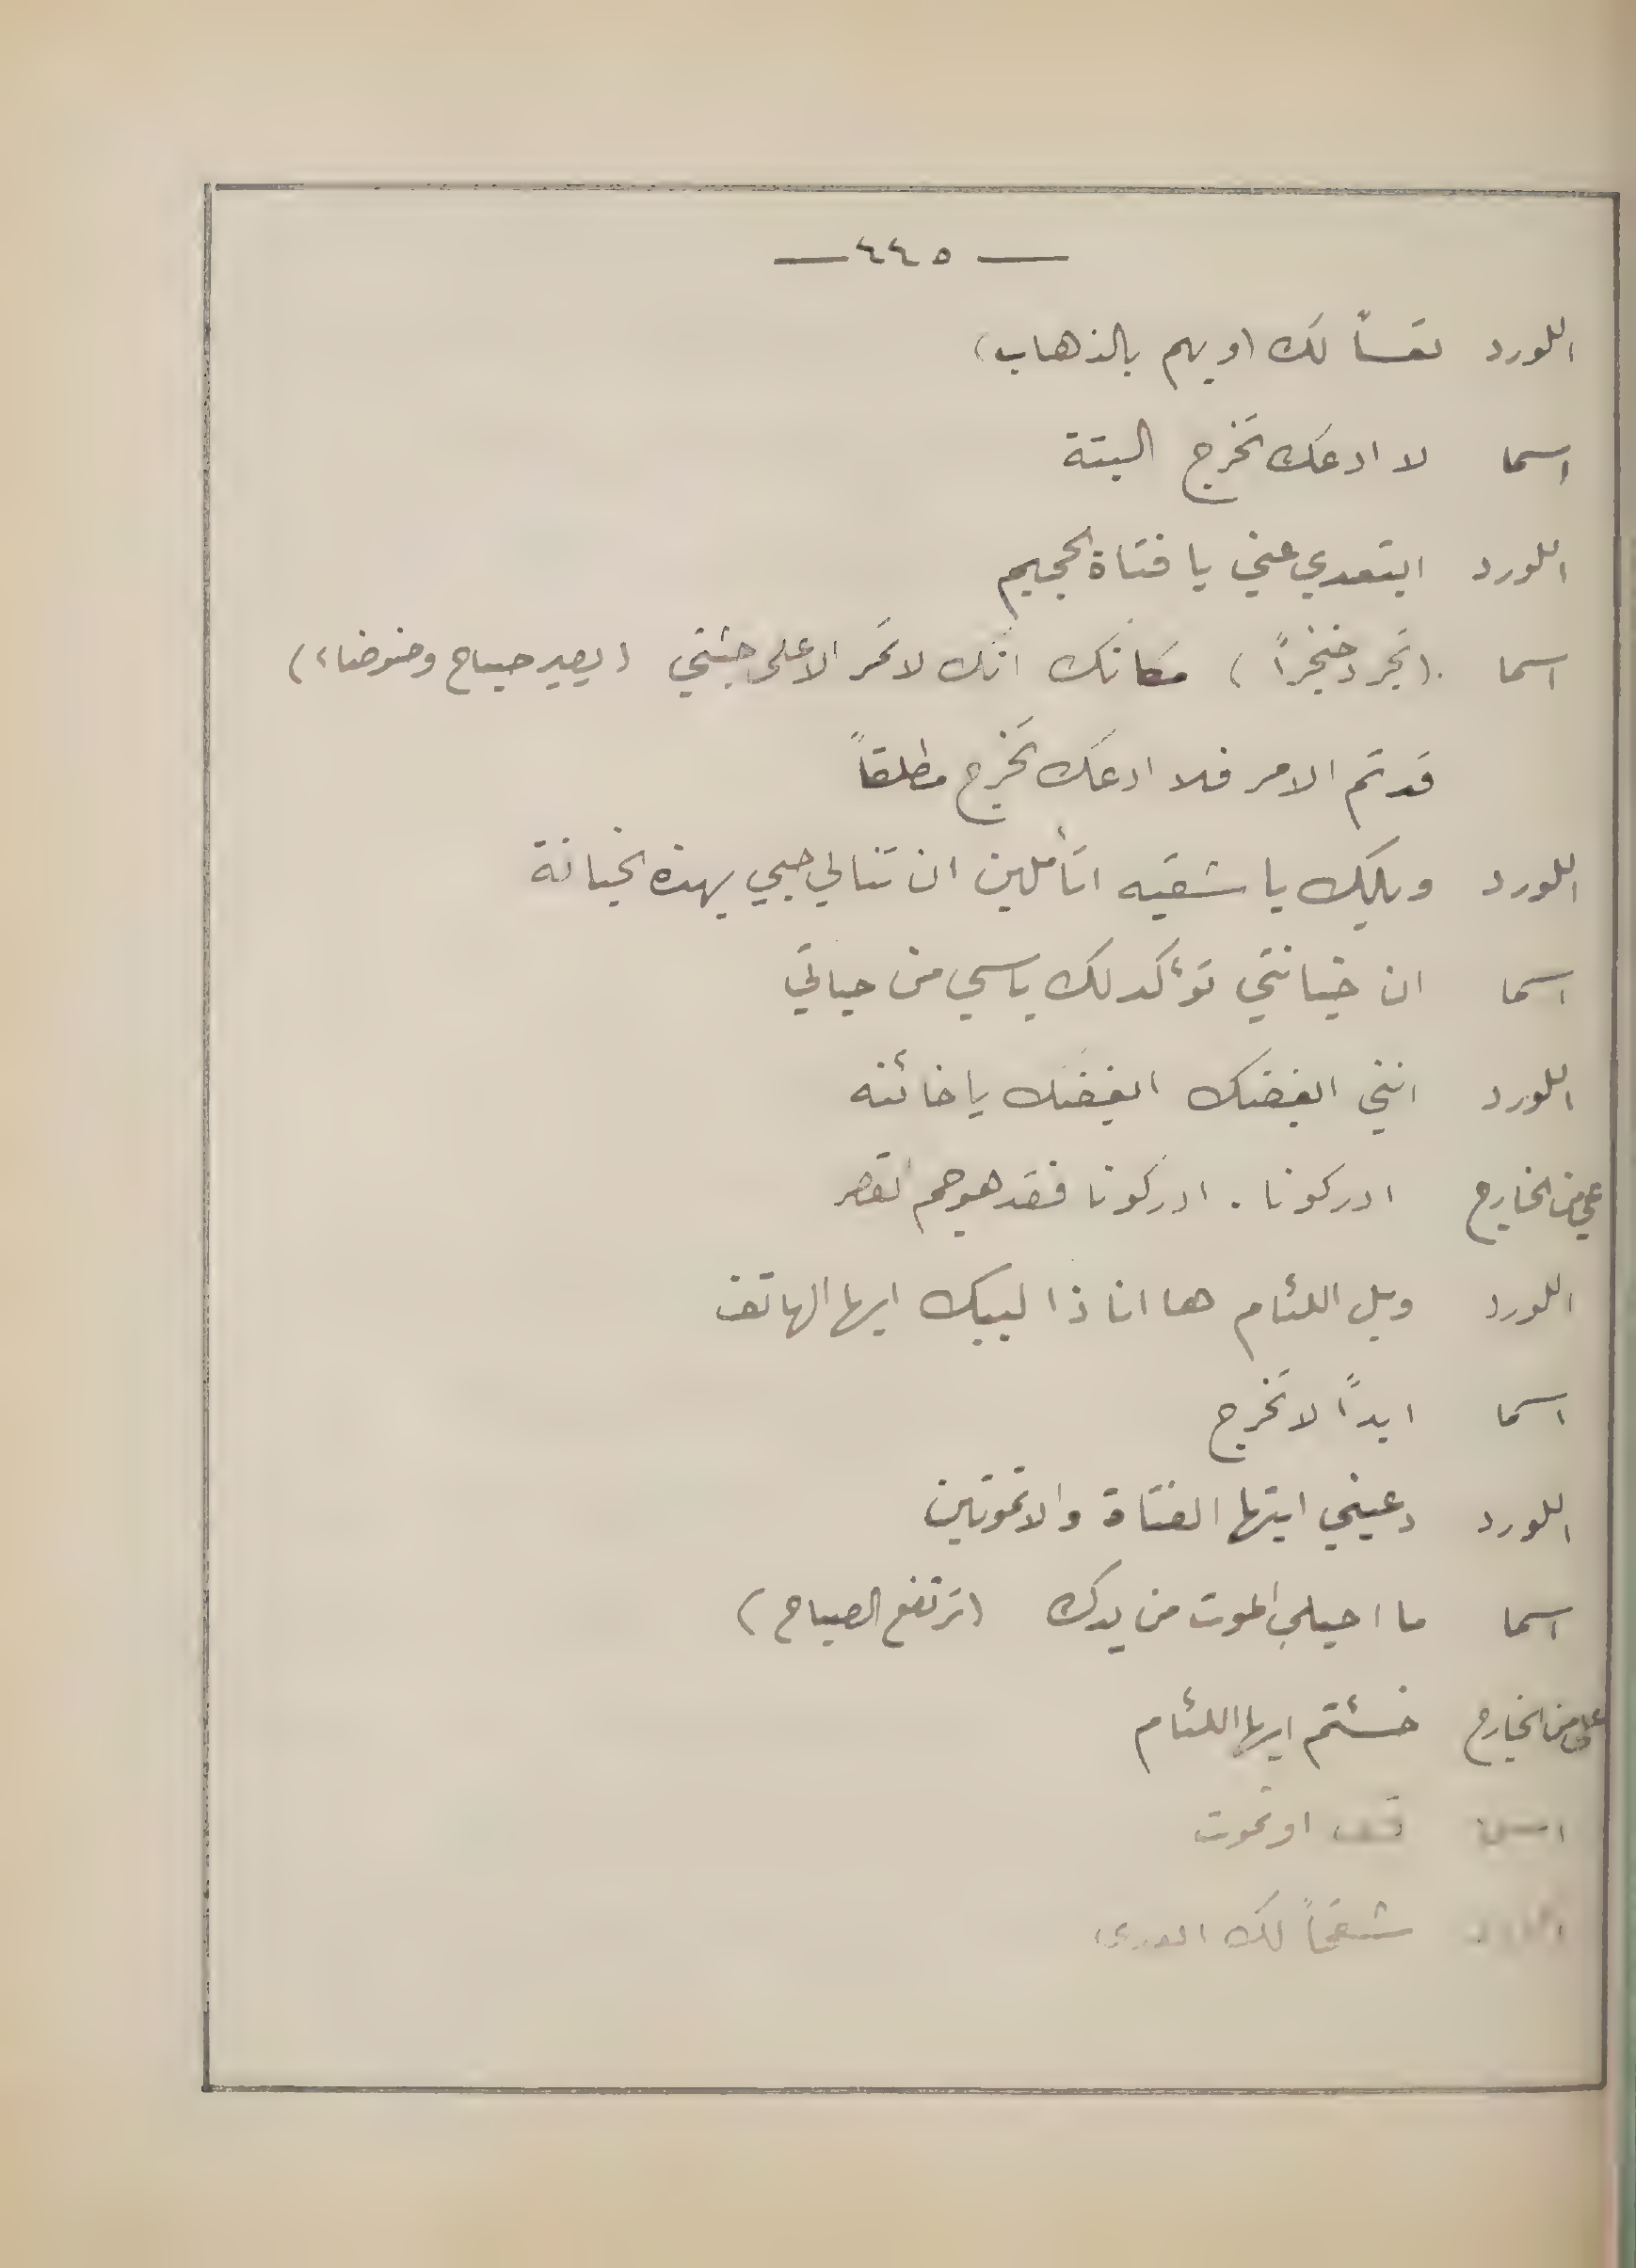 — ٤٤٥ —
اللورد تعساً لك (ويهم بالذهاب)
اسما لا ادعك تخرج البتة
اللورد ابتعدي عني يا فتاة الجحيم
اسما (تجرد خنجراً) مكانك انك لا تمر الا على جثتي (يصير صياح وضوضاء)
قد تم الامر فلا ادعك تخرج مطلقاً
اللورد ويلك يا شقيه اتأملين ان تنالي حبي بهذه الخيانة
اسما ان خيانتي تؤكد لك ياسي من حياتي
اللورد انني ابغضك ابغضك يا خائنه
علي من الخارج ادركونا . ادركونا فقد هوجم القصر
اللورد ويل اللئام ها انا ذا لبيك ايها الهاتف
اسما ابداً لا تخرج
اللورد دعيني ايتها الفتاة والا تموتين
اسما ما احيلى الموت من يدك (ترتفع الصياح)
علي من الخارج خسئتم ايها اللئام
اسما قف او تموت
اللورد لك